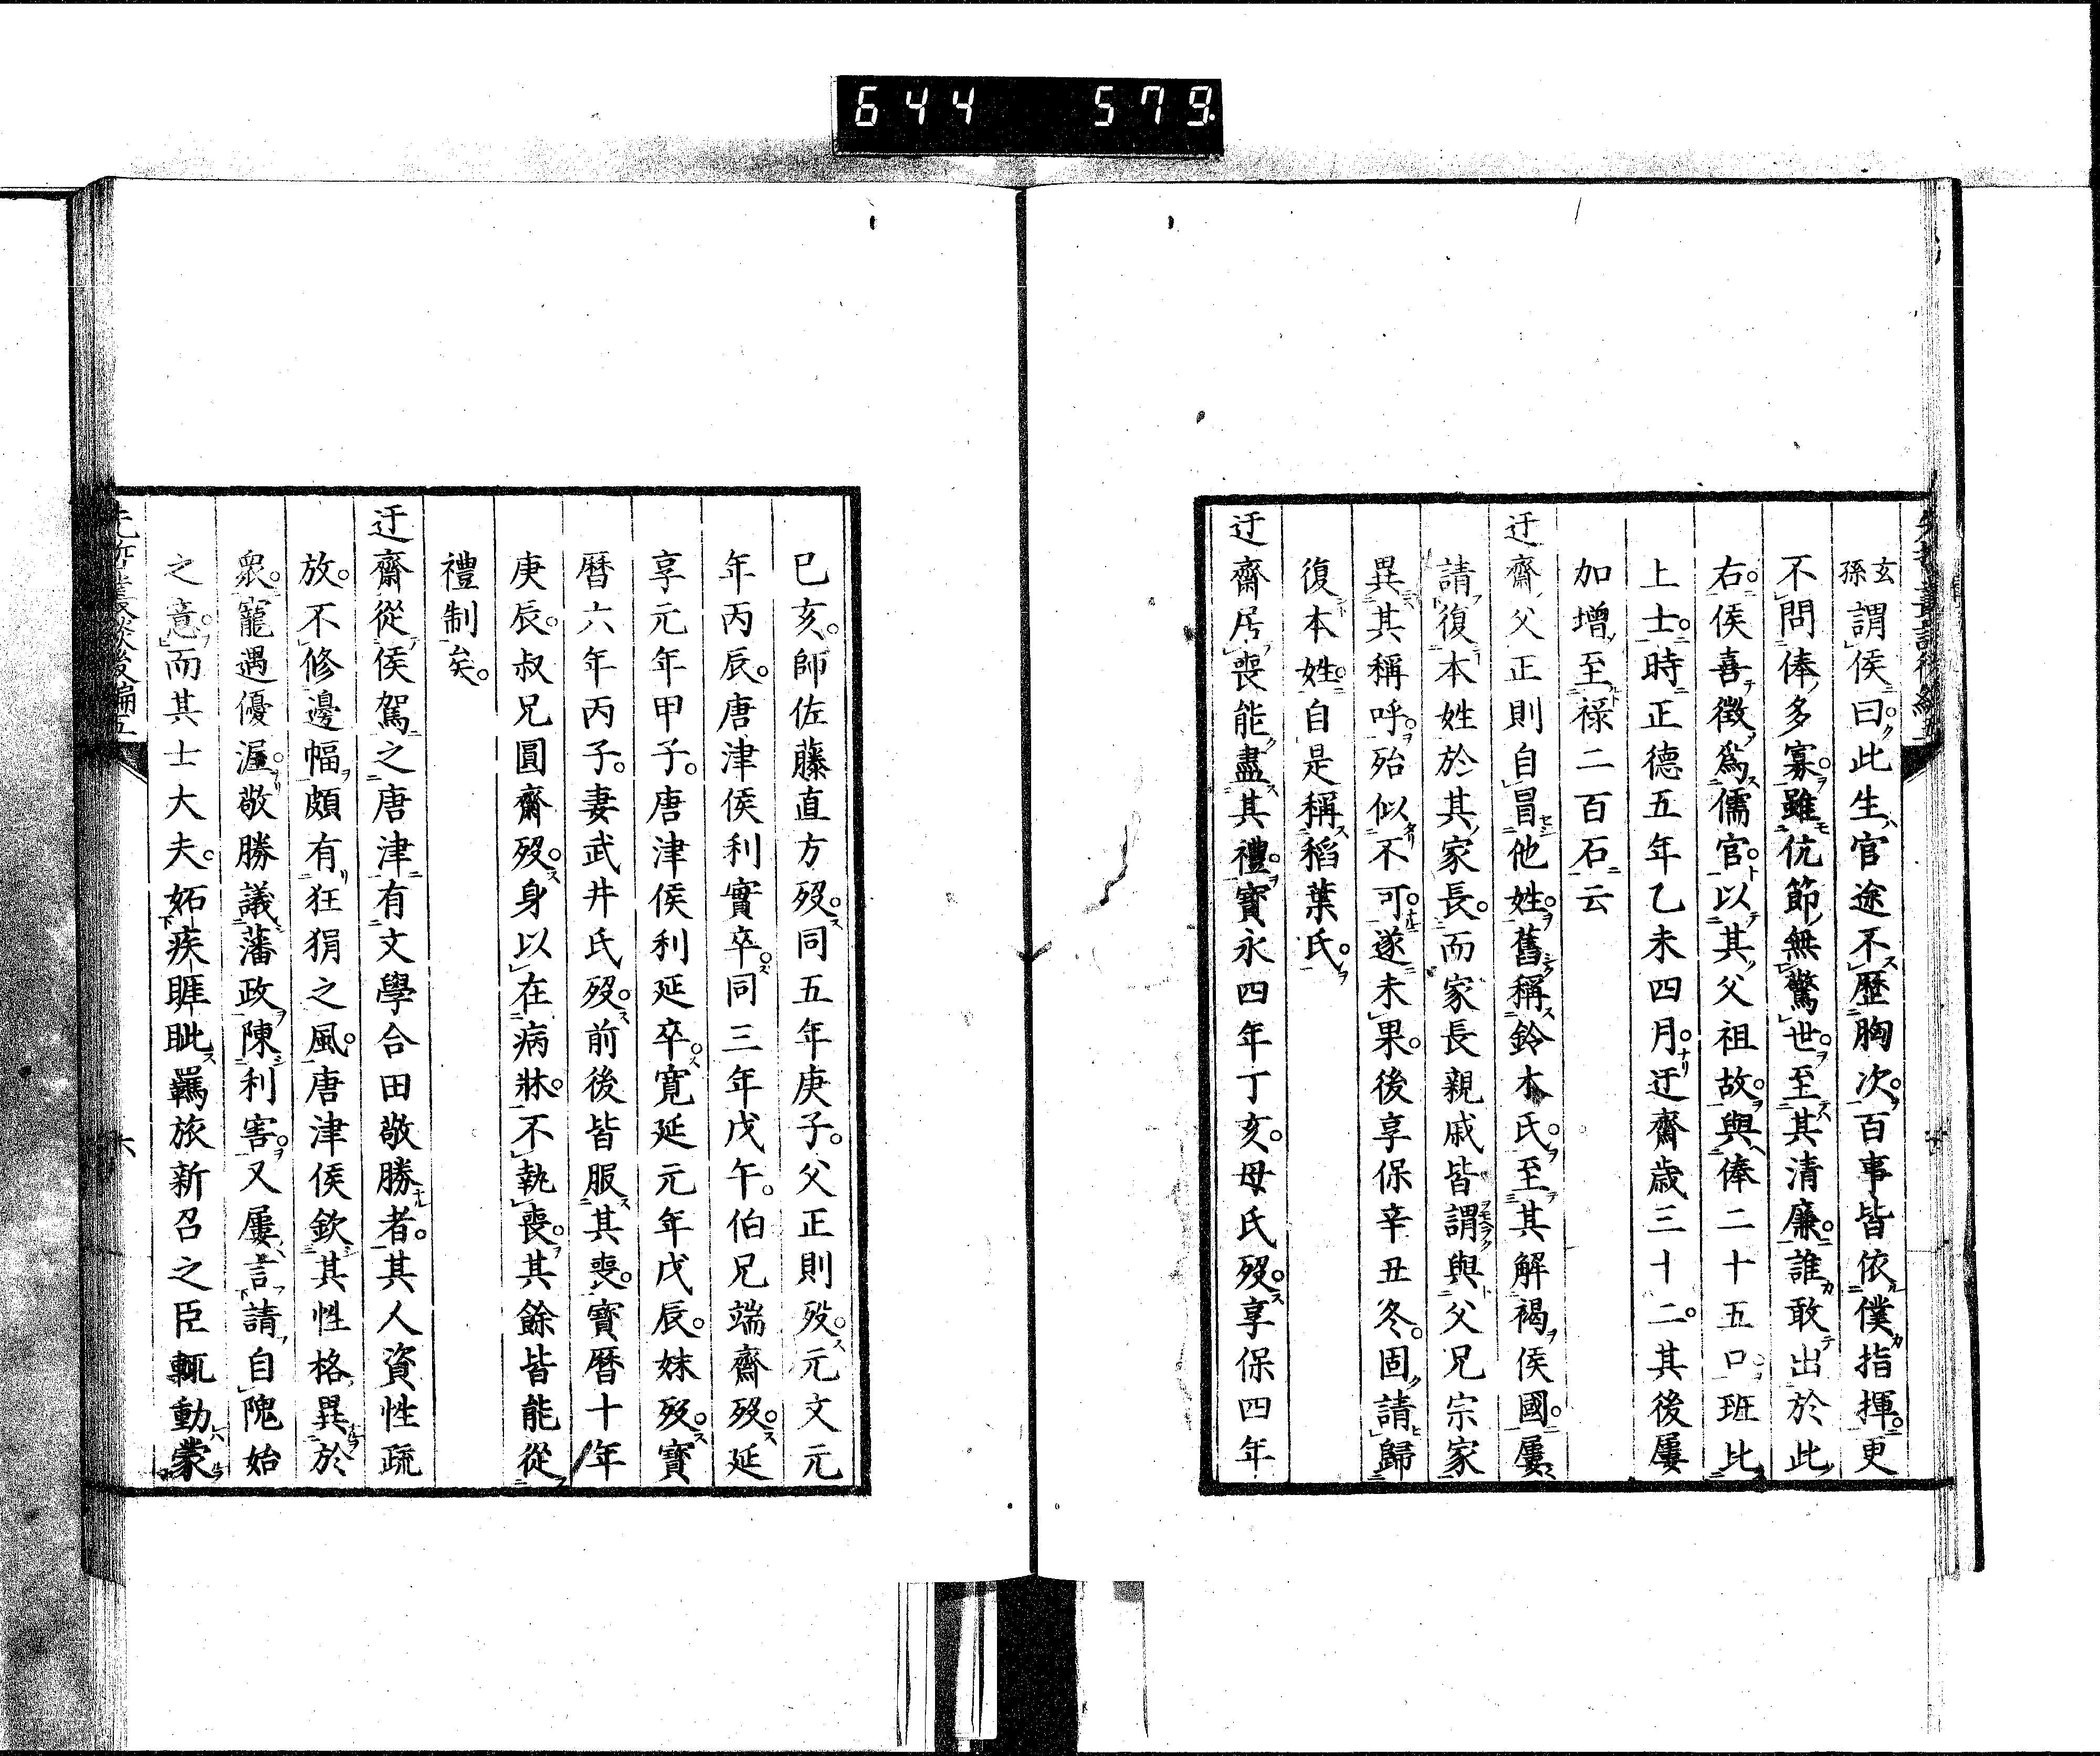 644 579
玄孫謂侯曰此生官途不歴胸次百事皆依僕指揮更
不問俸多寡雖伉節無驚世至其清廉誰敢出於此
右侯喜徴爲儒官以其父祖故與俸二十五口班比
上士時正德五年乙未四月迂齋歳三十二其後屢
加增至禄二百石云
迂齋父正則自冒他姓舊稱鈴木氏至其解褐侯國屢
請復本姓於其家長而家長親戚皆謂與父兄宗家
異其稱呼殆似不可遂未果後享保辛丑冬固請歸
復本姓自是稱稻葉氏
迂齋居喪能盡其禮寶永四年丁亥母氏歿享保四年
己亥師佐藤直方歿同五年庚子父正則歿元文元
年丙辰唐津侯利實卒同三年戊午伯兄端齋歿延
享元年甲子唐津侯利延卒寛延元年戊辰妹歿寳
暦六年丙子妻武井氏歿前後皆服其喪寳暦十年
庚辰叔兄圓齋歿身以在病牀不執喪其餘皆能從
禮制矣
迂齋從侯駕之唐津有文學合田敬勝者其人資性疏
放不修邊幅頗有狂狷之風唐津侯欽其性格異於
衆寵遇優渥敬勝議藩政陳利害又屢言請自隗始
之意而其士大夫妬疾睚眦羈旅新召之臣輒動蒙